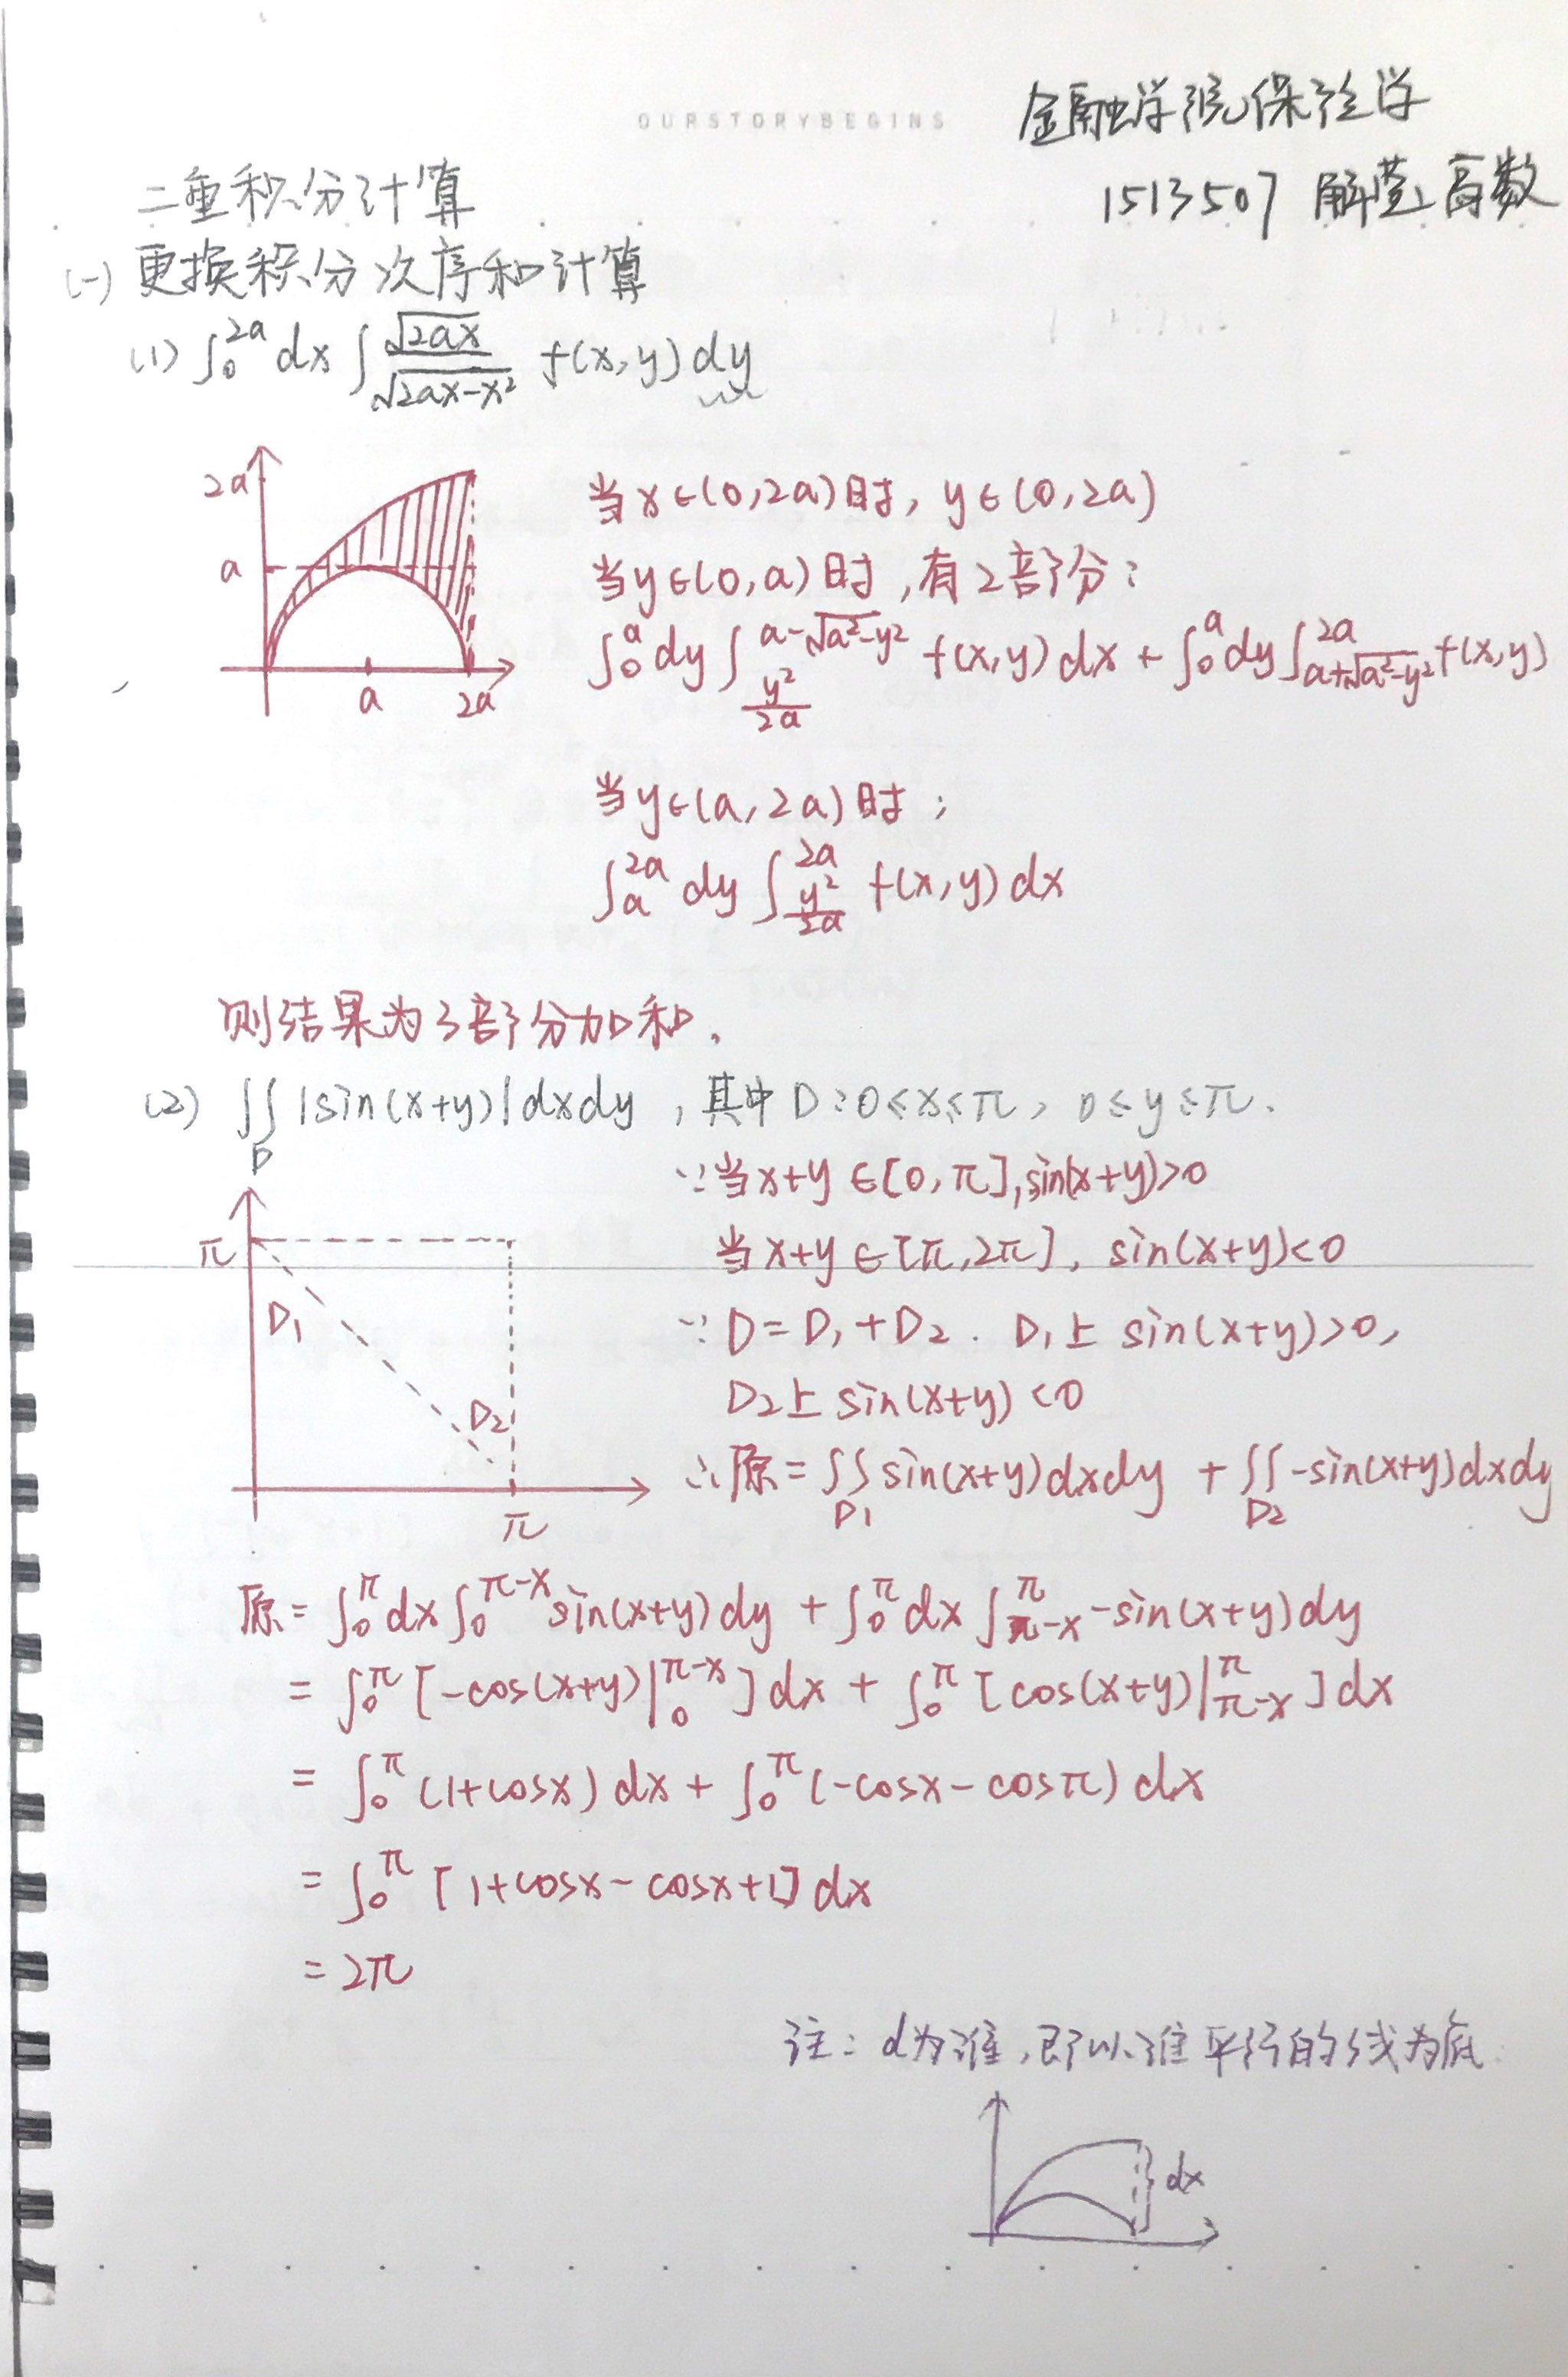 OURSTORYBEGINS
金融学院保险学
1513507 解莹 高数
二重积分计算
(一) 更换积分次序和计算
(1) ∫₀^{2a} dx ∫_{√(2ax-x²)}^{√(2ax)} f(x,y) dy
2a
a
a 2a
当x∈(0,2a)时, y∈(0,2a)
当y∈(0,a)时,有2部分:
∫₀^a dy ∫_{y²/2a}^{a-√(a²-y²)} f(x,y) dx + ∫₀^a dy ∫_{a+√(a²-y²)}^{2a} f(x,y)
当y∈(a,2a)时;
∫_a^{2a} dy ∫_{y²/2a}^{2a} f(x,y) dx
则结果为3部分加和.
(2) ∬_D |sin(x+y)| dxdy , 其中 D:0≤x≤π, 0≤y≤π.
π
D₁
D₂
π
∵当x+y∈[0,π],sin(x+y)>0
当x+y∈[π,2π], sin(x+y)<0
∵D=D₁+D₂. D₁上 sin(x+y)>0,
D₂上 sin(x+y)<0
∴原=∬_{D1} sin(x+y)dxdy + ∬_{D2} -sin(x+y)dxdy
原=∫₀^π dx∫₀^{π-x} sin(x+y)dy + ∫₀^π dx ∫_{π-x}^π -sin(x+y)dy
= ∫₀^π [-cos(x+y)|₀^{π-x}]dx + ∫₀^π [cos(x+y)|_{π-x}^π]dx
= ∫₀^π (1+cosx)dx + ∫₀^π (-cosx-cosπ)dx
= ∫₀^π [1+cosx-cosx+1]dx
= 2π
注: d为谁,即以谁平行的线为底.
dx